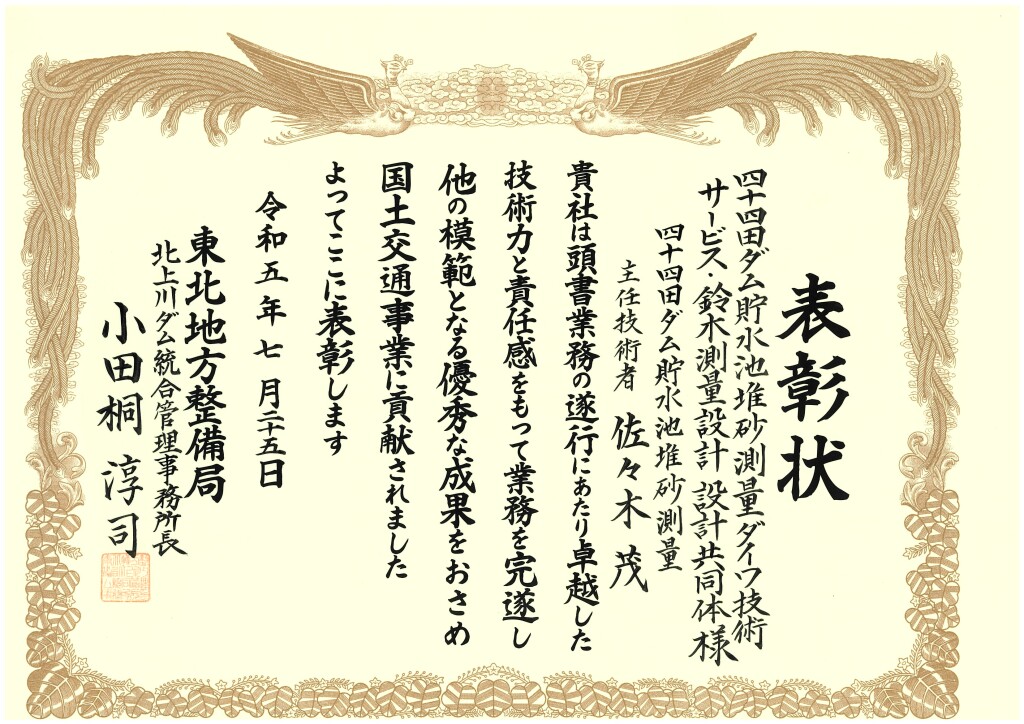 表彰状
四十四田ダム貯水池堆砂測量ダイワ技術
サービス・鈴木測量設計 設計共同体様
四十四田ダム貯水池堆砂測量
主任技術者 佐々木 茂
貴社は頭書業務の遂行にあたり卓越した
技術力と責任感をもって業務を完遂し
他の模範となる優秀な成果をおさめ
国土交通事業に貢献されました
よってここに表彰します
令和五年七月二十五日
東北地方整備局
北上川ダム統合管理事務所長
小田桐 淳司